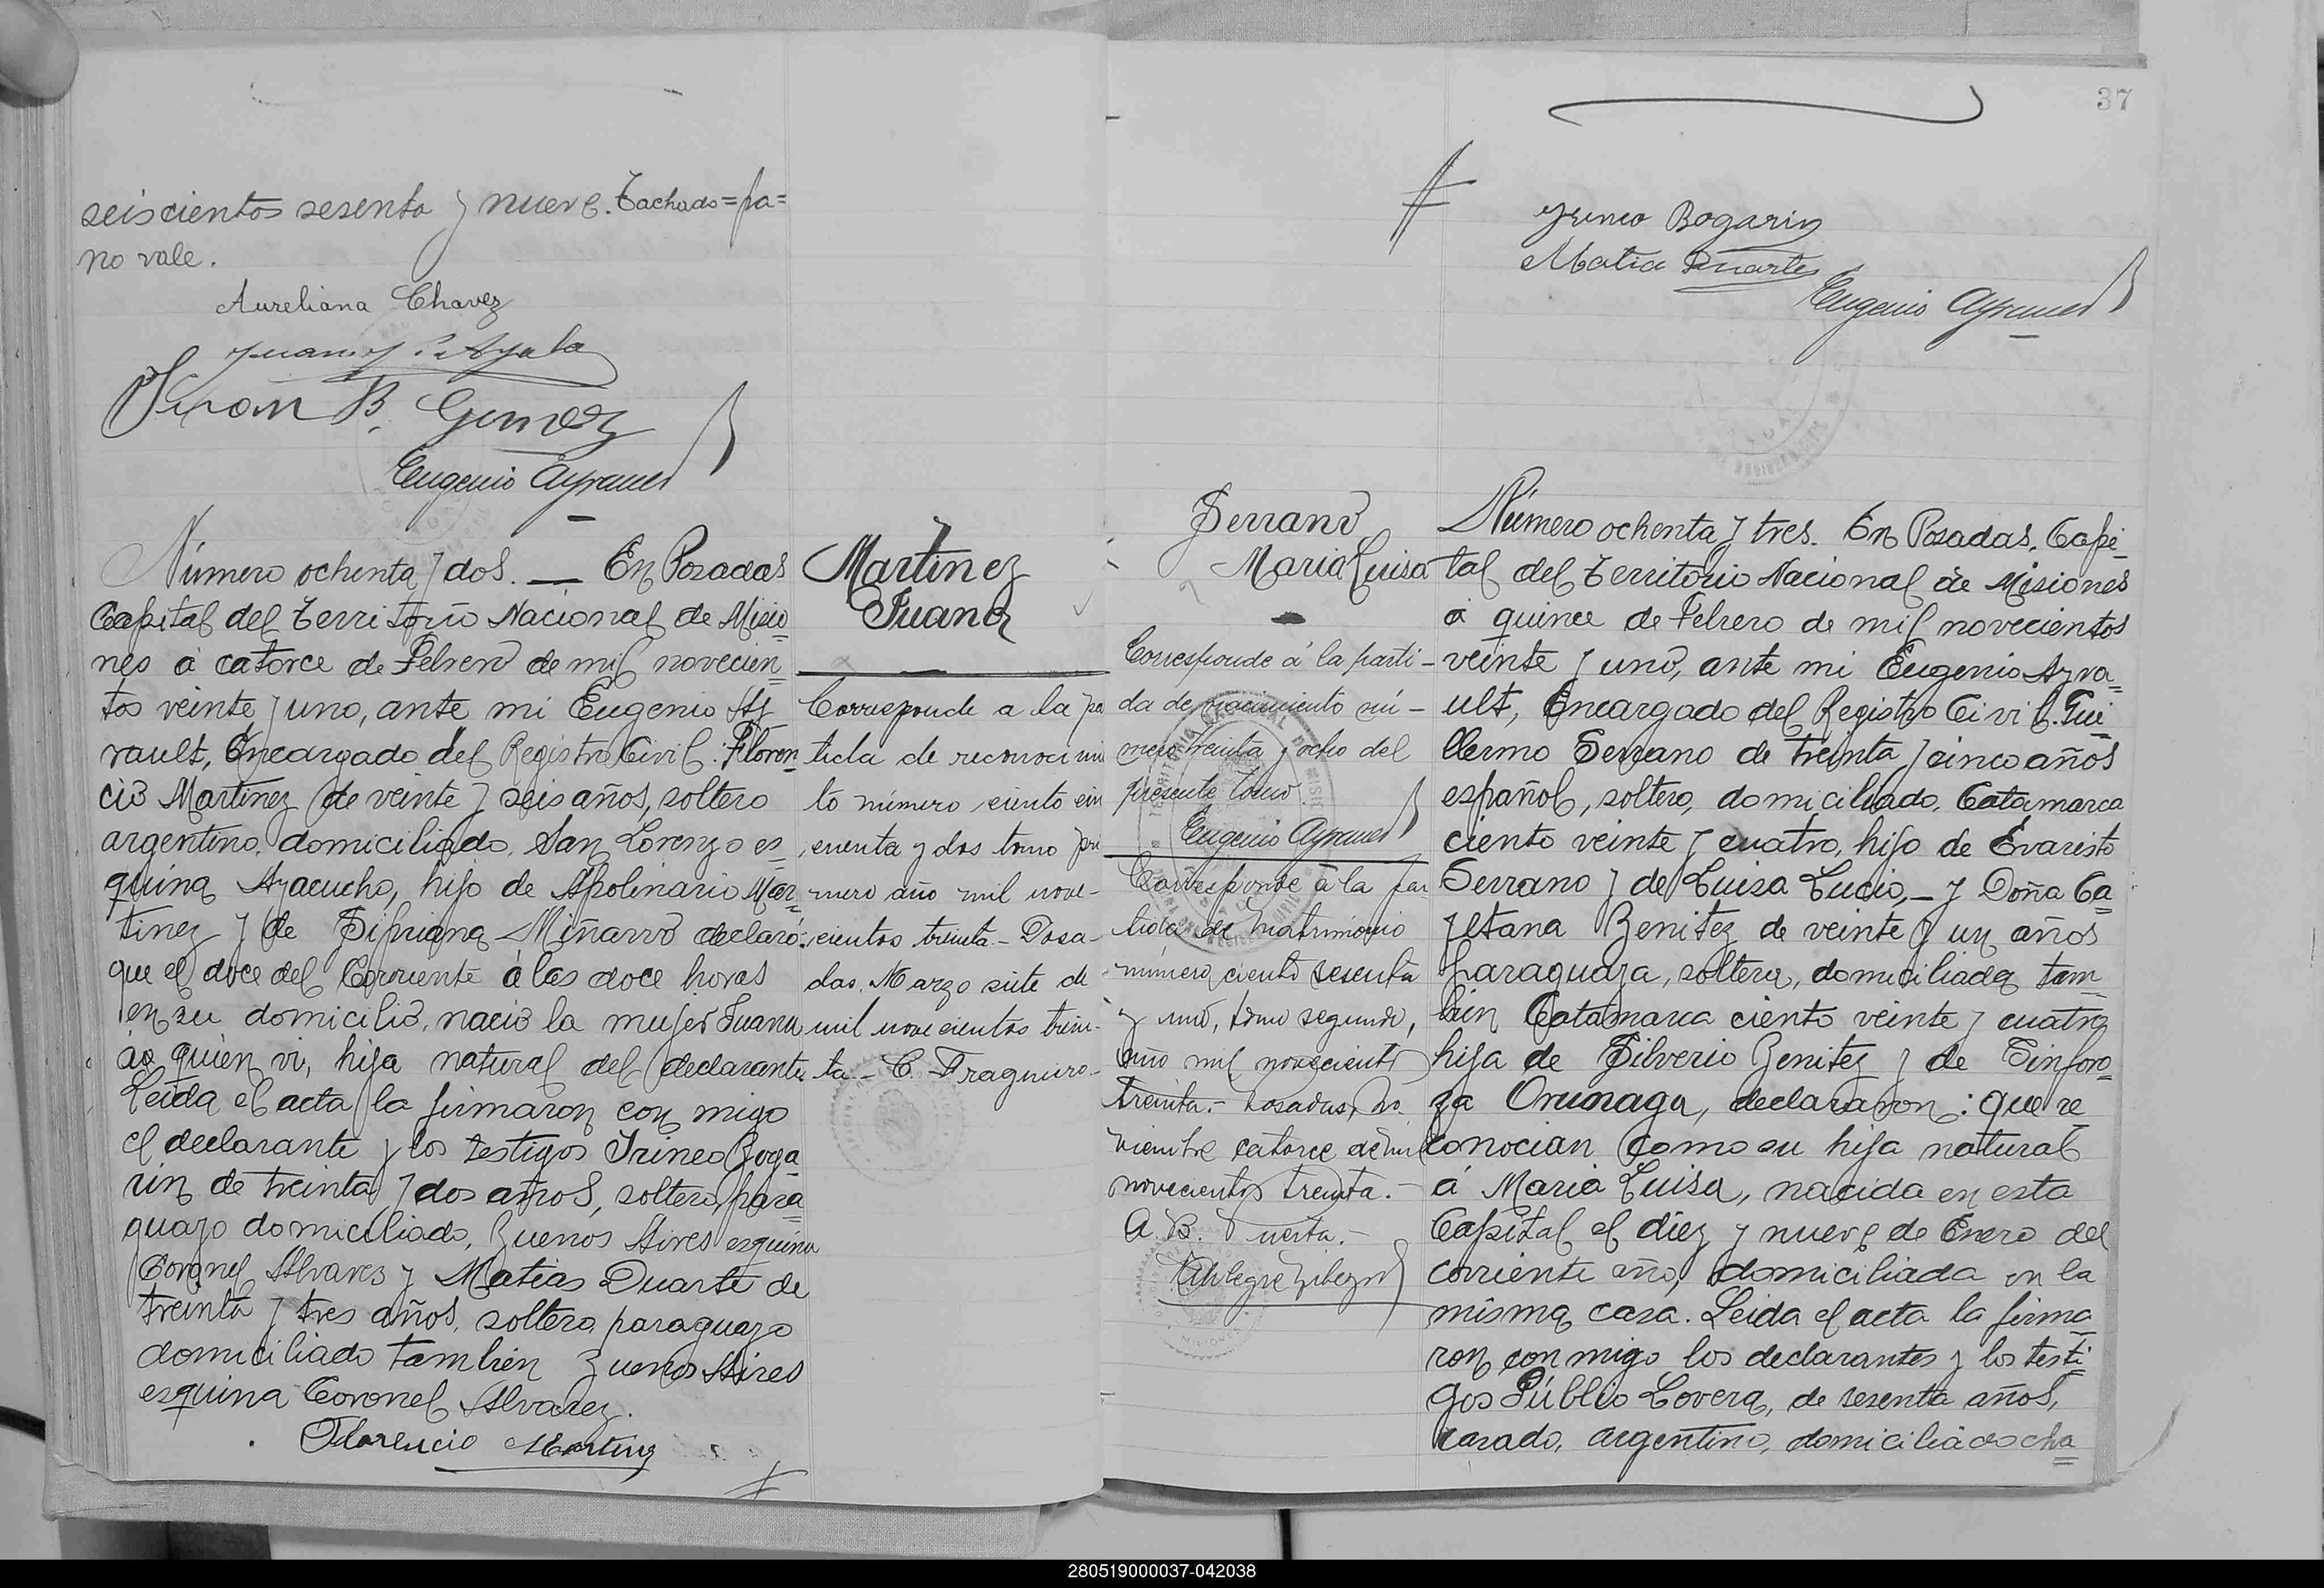 seiscientos sesenta y nueve. Tachado=pa=
no vale.
Aureliana Chavez
Juan Ayala
B. Gomez
Eugenio Ayrault
Número ochenta y dos. — En Posadas
Capital del Territorio Nacional de Misio
nes á catorce de Febrero de mil novecien
tos veinte y uno, ante mi Eugenio Ay
rault, Encargado del Registro Civil: Floren
cio Martinez de veinte y seis años, soltero
argentino, domiciliado, San Lorenzo es
quina Ayacucho, hijo de Apolinario Mar
tinez y de Sipriana Miñarro declaró:
que el doce del Corriente á las doce horas
en su domicilio, nació la mujer Juana
á quien vi, hija natural del declarante
Leida el acta la firmaron con migo
el declarante y los testigos Irineo Boga
rin de treinta y dos años, soltero, para
guayo domiciliado, Buenos Aires esquina
Coronel Alvarez y Matias Duarte de
treinta y tres años, soltero, paraguayo
domiciliado tambien Buenos Aires
esquina Coronel Alvarez.
Florencio Martinz
Martinez
Juana
Corresponde a la par
tida de reconocimi
to número ciento cin
cuenta y dos tomo pri
mero año mil nove-
cientos treinta - Posa-
das, Marzo siete de
mil novecientos trein-
ta - C. Fragueiro -
37
Yrineo Bogarin
Matia Duarte
Eugenio Ayrault
Serrano
Maria Luisa
Corresponde á la parti-
da de nacimiento nú-
mero treinta y ocho del
presente tomo.
Eugenio Ayrault
Corresponde á la par
tida de matrimonio
número ciento sesenta
y uno, tomo segundo,
año mil novecientos
treinta.- Posadas, No
viembre catorce de mil
novecientos treinta.-
A. B. Puerta.-
Número ochenta y tres. En Posadas, Capi
tal del Territorio Nacional de Misiones
á quince de Febrero de mil novecientos
veinte y uno, ante mi Eugenio Ayra
ult, Encargado del Registro Civil. Gui
llermo Serrano de treinta y cinco años
español, soltero, domiciliado, Catamarca
ciento veinte y cuatro, hijo de Evaristo
Serrano y de Luisa Lucio, — y Doña Ca
yetana Benitez de veinte y un años
paraguaya, soltera, domiciliada tam
bien Catamarca ciento veinte y cuatro
hija de Silverio Benitez y de Sinforo
za Orunaga, declararon: que re
conocian como su hija natural
á Maria Luisa, nacida en esta
Capital el diez y nueve de Enero del
corriente año, domiciliada en la
misma casa. Leida el acta la firma
ron con migo los declarantes y los testi
gos Públio Lovera, de sesenta años,
casado, argentino, domiciliado cha
280519000037-042038